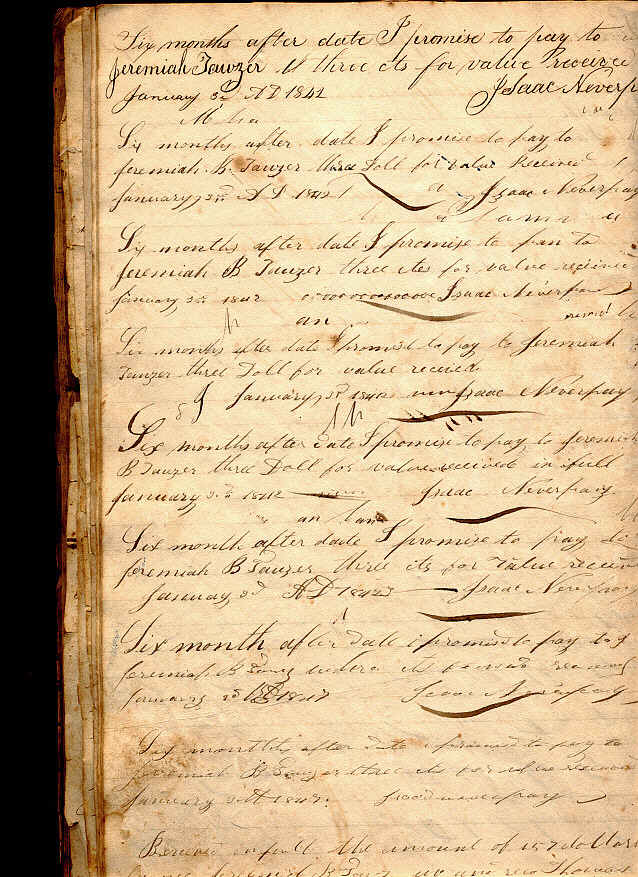 Six months after date I promise to pay to
Jeremiah Tawzer three cts for value receive
January 3d AD 1842 Isaac Neverp
Six months after date I promise to pay to
Jeremiah B. Tawzer three Doll for value Received
January 3rd AD 1842 Isaac Neverpay
Six months after date I promise to pan to
Jeremiah B Tawzer three cts for value receive
January 3rd 1842 Isaac Neverpay
an
Six months after date I promise to pay to Jeremiah
Tawzer three Doll for value received
January 3d 1842 Isaac Neverpay
Six months after date I promise to pay to Jeremiah
B Tawzer three Doll for value received in full
January 3rd 1842 Isaac Neverpay
an
Six month after date I promise to pay to
Jeremiah B Tawzer three cts for value receive
January 3d AD 1842 Isaac Neverpay
Six month after date i promise to pay to
Jeremiah B
January 3d Isaac Neverpay
Six months after date i promise to pay to
Jeremiah B Tawzer three cts for value receive
January
Received in full the amount of 157 dollars
Thomas